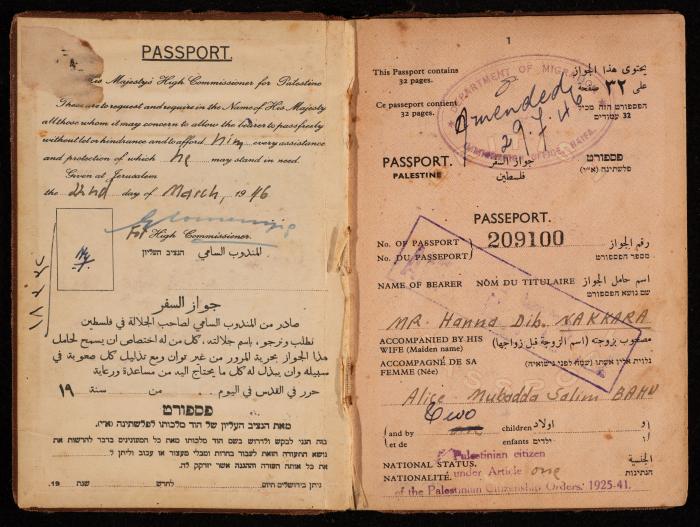 PASSPORT.
His Majesty's High Commissioner for Palestine
These are to request and require in the Name of His Majesty
all those whom it may concern to allow the bearer to pass freely
without let or hindrance and to afford him every assistance
and protection of which he may stand in need.
Given at Jerusalem
the 22nd day of March, 1946
For High Commissioner.
المندوب السامي הנציב העליון
جواز السفر
صادر من المندوب السامي لصاحب الجلالة في فلسطين
نطلب ونرجو، باسم جلالته، كل من له اختصاص ان يسمح لحامل
هذا الجواز بحرية المرور من غير توان ومع تذليل كل صعوبة في
سبيله وان يبذل له كل ما يحتاج اليه من مساعدة ورعاية
حرر في القدس في اليوم... من سنة ١٩
פספורט
מאת הנציב העליון של הוד מלכותו לפלשתינה (א״י).
הננו לבקש ולדרוש בשם הוד מלכותו מאת כל המעונינים בדבר להרשות את
נושא התעודה הזאת לעבור בחרות ומבלי מעצור או עכוב וליתן לו
את כל אותה העזרה וההגנה אשר יזדקק לה.
ניתן בירושלים היום לחדש שנת 19
1
This Passport contains
32 pages.
يحتوي هذا الجواز
على ٣٢ صفحة
Ce passeport contient
32 pages.
הפספורט הזה מכיל
32 עמודים
DEPARTMENT OF MIGRATION
Amended
29/7/46
PASSPORT.
PALESTINE
جواز السفر
فلسطين
פספורט
פלשתינה (א״י)
PASSEPORT.
No. OF PASSPORT
No. DU PASSEPORT
209100
رقم الجواز
מספר הפספורט
NAME OF BEARER NOM DU TITULAIRE اسم حامل الجواز
שם נושא הפספורט
MR. Hanna Dib. NAKKARA
ACCOMPANIED BY HIS
WIFE (Maiden name)
مصحوب بزوجته (اسم الزوجة قبل زواجها)
ACCOMPAGNÉ DE SA
FEMME (Née)
נלוית אליו אשתו (שמה לפני נישואיה)
Alice Mubadda Salim BAHU
Two
(and by children اولاد (و
(et de enfants ילדים (ו
NATIONAL STATUS.
NATIONALITÉ.
Palestinian citizen
under Article one
of the Palestinian Citizenship Orders, 1925-41.
الجنسية
הנתינות